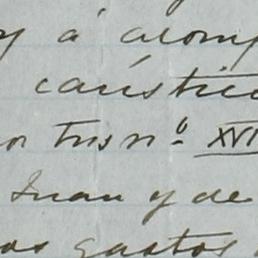 y á acomp
caústico
or tris nº XVI
Juan y de
os gastos